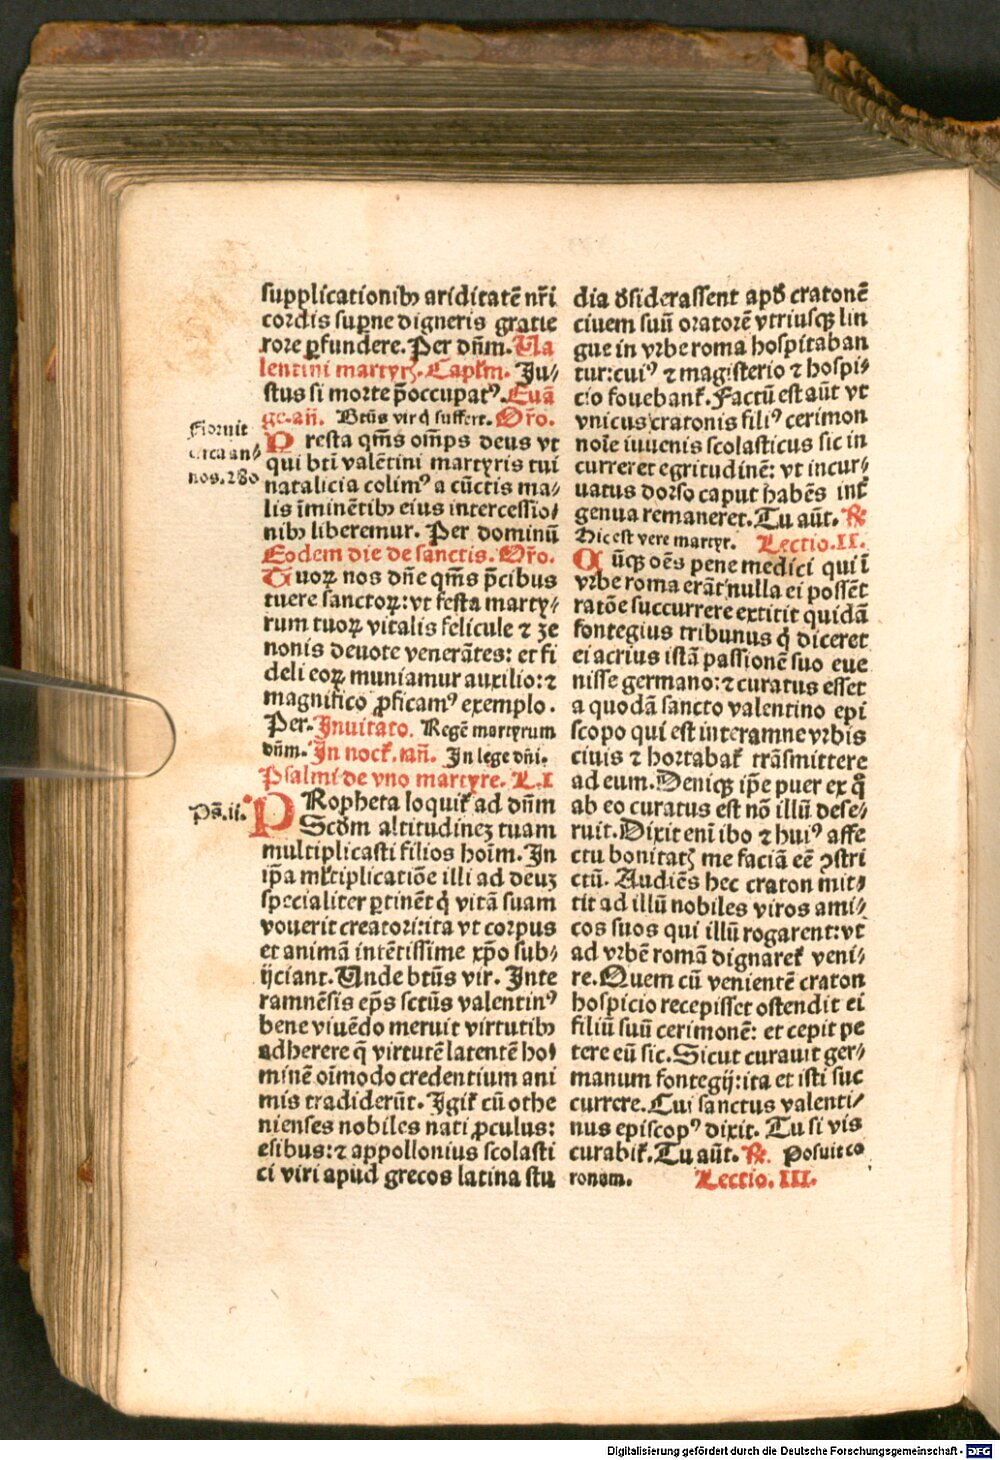 supplicationibꝫ ariditatē nr̄i
cordis supne digneris gratie
rore ꝑfundere. Per dn̄m. Va
lentini martyrꝭ. Capl̄m. Ju⸗
stus si morte p̄occupatꝰ. Euā
ge. an̄. Btūs vir q̇ suffert. Or̄o.
PResta qm̄s om̄ps deus vt
qui btī valētini martyris tui
natalicia colimꝰ a cūctis ma⸗
lis īminētibꝫ eius intercessio⸗
nibꝫ liberemur. Per dominū
Eodem die de sanctis. Or̄o.
TUoꝝ nos dn̄e qm̄s p̄cibus
tuere sanctoꝝ: vt festa marty⸗
rum tuoꝝ vitalis felicule ⁊ ze
nonis deuote venerātes: et fi
deli eoꝝ muniamur auxilio: ⁊
magnifico ꝓficamꝰ exemplo.
Per. Inuitato. Regē martyrum
dn̄m. In noct̄. an̄. In lege dn̄i.
Psalmi de vno martyre. L. I
PRopheta loquit̄ ad dn̄m
Scd̄m altitudineꝫ tuam
multiplicasti filios hoīm. In
ip̄a ml̄tiplicatiōe illi ad deuꝫ
specialiter ꝑtinēt q̇ vitā suam
vouerit creatori: ita vt corpus
et animā intētissime xp̄o sub⸗
ijciant. Unde btūs vir. Inte
ramnēsis ep̄s sctūs valentinꝰ
bene viuēdo meruit virtutibꝫ
adherere q̄ virtutē latentē ho⸗
minē oīmodo credentium ani
mis tradiderūt. Igit̄ cū othe
nienses nobiles nati ꝓculus:
esibus: ⁊ appollonius scolasti
ci viri apud grecos latina stu
Floruit
circa an⸗
nos. 280
Ps̄. ii.
dia ꝺsiderassent apꝺ cratonē
ciuem suū oratorē vtriusqꝫ lin
gue in vrbe roma hospitaban
tur: cuiꝰ ⁊ magisterio ⁊ hospi⸗
cio fouebant̄. Factū est aūt vt
vnicus cratonis filiꝰ cerimon
noīe iuuenis scolasticus sic in
curreret egritudinē: vt incur⸗
uatus dorso caput habēs int̄
genua remaneret. Tu aūt. ℟
Hic est vere martyr. Lectio. II.
CUqꝫ oēs pene medici qui ī
vrbe roma erāt nulla ei possēt
ratōe succurrere extitit quidā
fontegius tribunus q̇ diceret
ei acrius istā passionē suo eue
nisse germano: ⁊ curatus esset
a quodā sancto valentino epi
scopo qui est interamne vrbis
ciuis ⁊ hortabat̄ trāsmittere
ad eum. Deniqꝫ ip̄e puer ex q̄
ab eo curatus est nō illū dese⸗
ruit. Dixit enī ibo ⁊ huiꝰ affe
ctu bonitatꝭ me faciā eē ꝯstri
ctū. Audiēs hec craton mit⸗
tit ad illū nobiles viros ami⸗
cos suos qui illū rogarent: vt
ad vrbē romā dignaret̄ veni⸗
re. Quem cū venientē craton
hospicio recepisset ostendit ei
filiū suū cerimonē: et cepit pe
tere eū sic. Sicut curauit ger⸗
manum fontegij: ita et isti suc
currere. Cui sanctus valenti⸗
nus episcopꝰ dixit. Tu si vis
curabit̄. Tu aūt. ℟. Posuit co
ronam. Lectio. III.
Digitalisierung gefördert durch die Deutsche Forschungsgemeinschaft - DFG